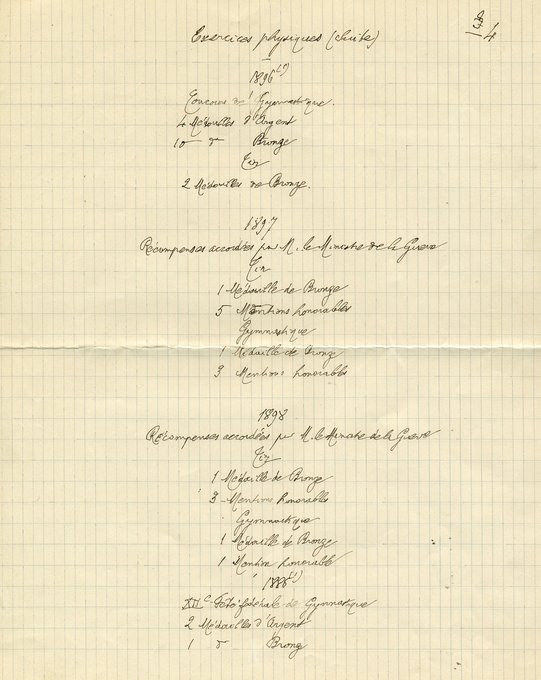 4
Exercices physiques (suite)
1896 (1)
Concours de Gymnastique.
4 Médailles d'Argent
10 d° Bronze
Tir
2 Médailles de Bronze.
1897
Récompenses accordées par M. le Ministre de la Guerre
Tir
1 Médaille de Bronze
5 Mentions honorables
Gymnastique
1 Médaille de Bronze
3 Mentions honorables
1898
Récompenses accordées par M. le Ministre de la Guerre
Tir
1 Médaille de Bronze
3 Mentions honorables
Gymnastique
1 Médaille de Bronze
1 Mention honorable
Fête fédérale de Gymnastique
2 Médailles d'Argent
1 d° Bronze